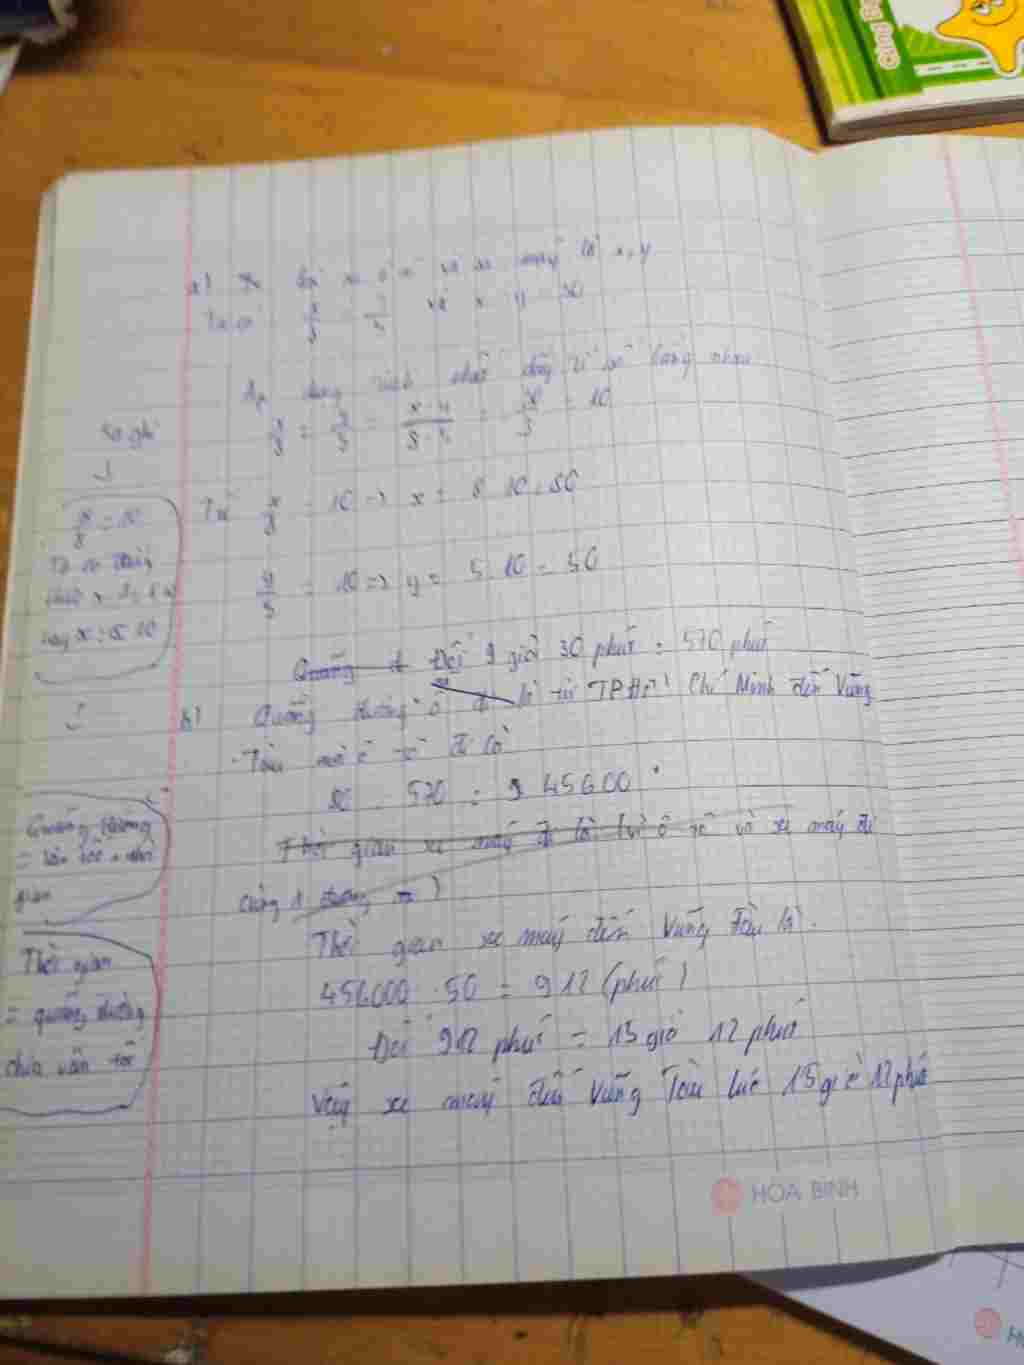 a) xe ô tô và xe máy là x, y
Ta có x/8 = y/5 và x - y = 30
Áp dụng tính chất dãy tỉ số bằng nhau
x/8 = y/5 = x-y/8-5 = 30/3 = 10
Từ x/8 = 10 => x = 8.10 = 80
y/5 = 10 => y = 5.10 = 50
Quãng Đổi 9 giờ 30 phút = 570 phút
b) Quãng đường ô đi là từ TP Hồ Chí Minh đến Vũng
Tàu mà ô tô đi là
80 . 570 = 45600
Thời gian xe máy đi là (vì ô tô và xe máy đi
cùng 1 đường )
Thời gian xe máy đến Vũng Tàu là.
45600 : 50 = 912 (phút)
Đổi 912 phút = 15 giờ 12 phút
Vậy xe máy đến Vũng Tàu lúc 15 giờ 12 phút
x/8 = 10
hay x = 8.10
Quãng đường
= vận tốc . thời
gian
Thời gian
= quãng đường
chia vận tốc
HOA BINH